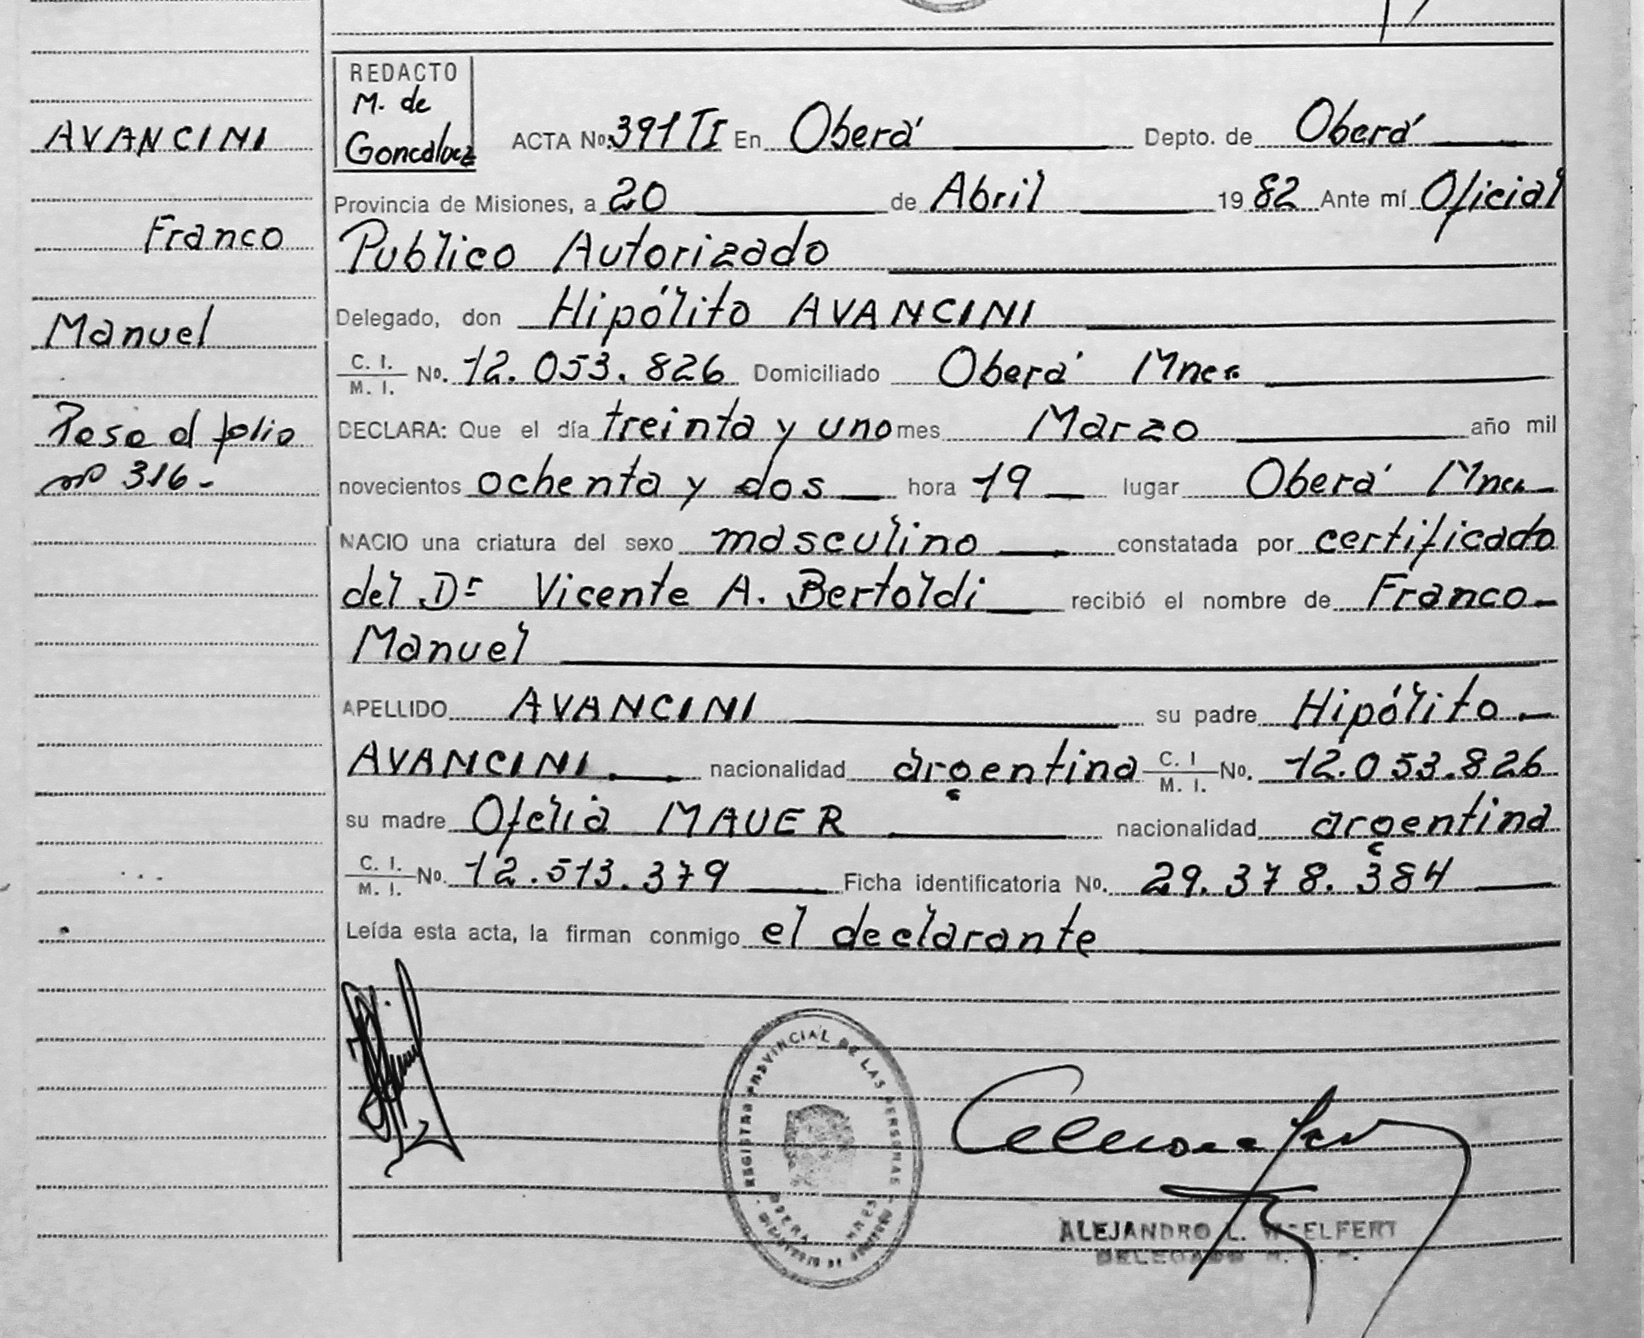 AVANCINI
Franco
Manuel
Pasa al folio
nº 316.-
REDACTO
M. de
Goncalvez
ACTA No. 391 TI En Oberá Depto. de Oberá
Provincia de Misiones, a 20 de Abril 1982 Ante mí Oficial
Publico Autorizado
Delegado, don Hipólito AVANCINI
C. I. / M. I. No. 12.053.826 Domiciliado Oberá Mnes
DECLARA: Que el día treinta y uno mes Marzo año mil
novecientos ochenta y dos hora 19 lugar Oberá Mnes
NACIO una criatura del sexo masculino constatada por certificado
del Dr Vicente A. Bertoldi recibió el nombre de Franco
Manuel
APELLIDO AVANCINI su padre Hipólito
AVANCINI nacionalidad argentina C. I / M. I. No. 12.053.826
su madre Ofelia MAUER nacionalidad argentina
C. I. / M. I. No. 12.513.379 Ficha identificatoria No. 29.378.384
Leída esta acta, la firman conmigo el declarante
REGISTRO PROVINCIAL DE LAS PERSONAS
OBERA MNES
ALEJANDRO L. ELFERT
DELEGADO